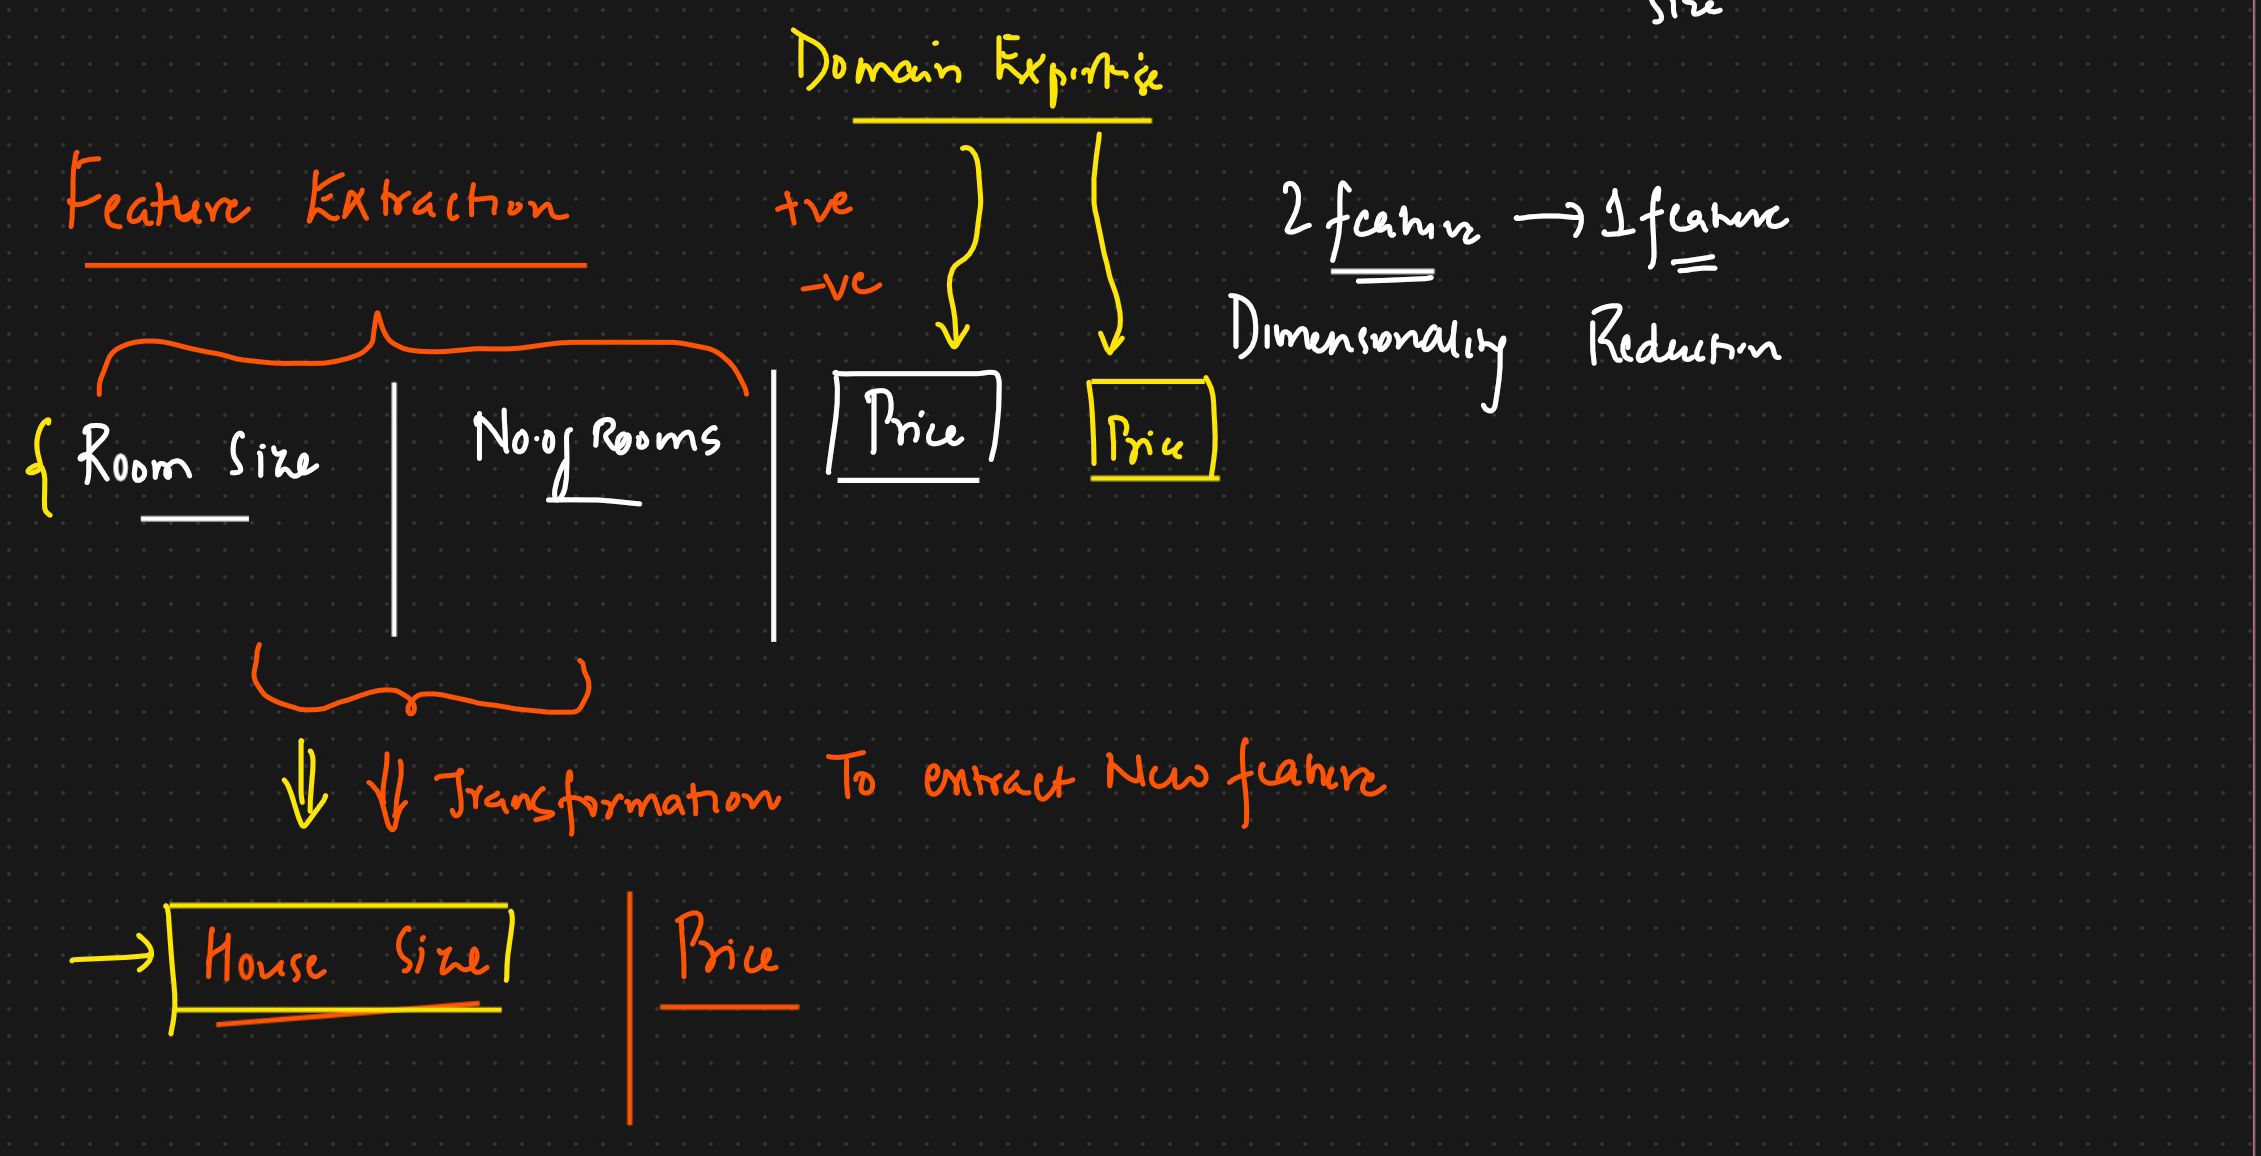 Size
Domain Expertise
Feature Extraction
+ve
-ve
2 feature → 1 feature
Dimensionality Reduction
{ Room Size | No. of Rooms | Price Price
Transformation To extract New feature
→ House Size | Price